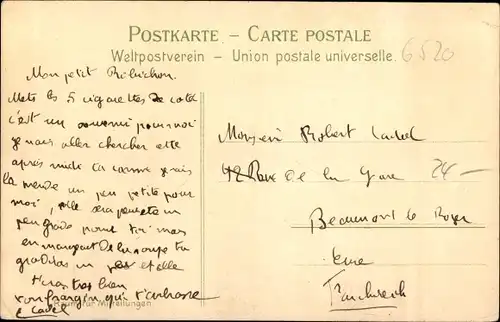 POSTKARTE – CARTE POSTALE
Weltpostverein – Union postale universelle.
6520
Mon petit
Mets les 5 cigarettes de coté
c'est un souvenir pour moi
je vais aller chercher cette
après midi la canne je vais
la prendre un peu petite pour
moi, elle sera peut etre un
peu grade pour toi mais
en mangeant de la soupe tu
grandiras un peu et elle
t'iras tres bien
ton frangin qui t'embrasse
Cadel
Raum für Mitteilungen
Monsieur Robert Cadel
42 Rue de la Gare
24 –
Beaumont le Roger
Eure